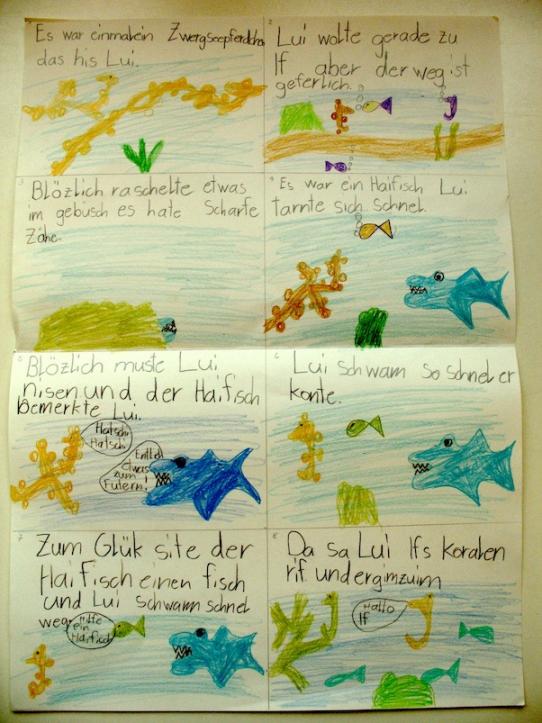 Es war einmalein Zwergseepferdchen
das his Lui.
2
Lui wolte gerade zu
If aber der weg ist
geferlich.
3
Blözlich raschelte etwas
im gebüsch es hate Scharfe
Zähe.
4
Es war ein Haifisch Lui
tarnte sich schnel.
5
Blözlich muste Lui
nisen und der Haifisch
bemerkte Lui.
Hatschi
Hatschi
Entlich
etwas
zum
Futern!
6
Lui schwam so schnel er
konte.
7
Zum Glük site der
Haifisch einen fisch
und Lui schwamm schnel
weg.
Hilfe
ein
Haifisch
8
Da sa Lui Ifs koralen
rif und ergimzuim
Hallo
If